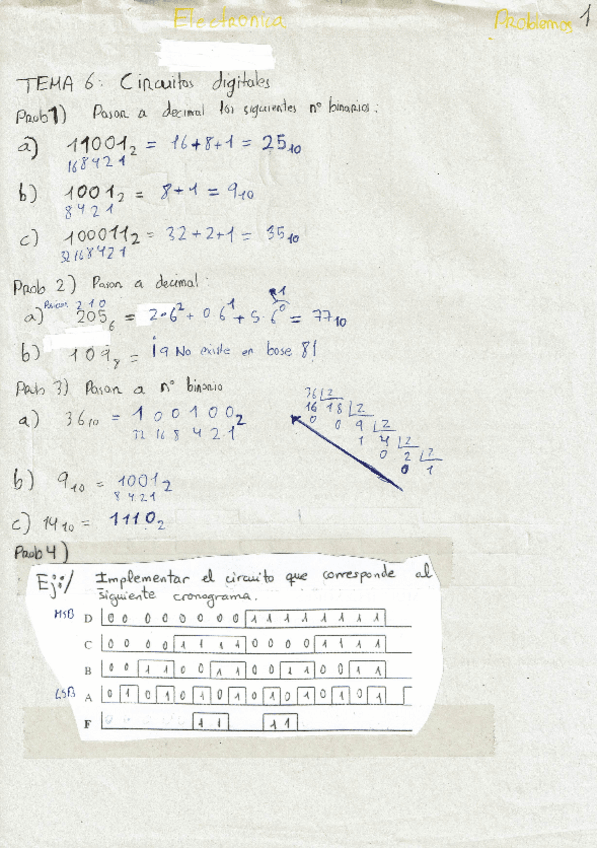 Electronica
Problemas 1
TEMA 6: Circuitos digitales
Prob 1) Pasar a decimal los siguientes nº binarios:
a) 11001₂ = 16+8+1 = 25₁₀
16 8 4 2 1
b) 1001₂ = 8+1 = 9₁₀
8 4 2 1
c) 100011₂ = 32+2+1 = 35₁₀
32 16 8 4 2 1
Prob 2) Pasar a decimal:
2 1 0 1
a) 205₆ = 2·6² + 0 6¹ + 5·6⁰ = 77₁₀
b) 109₈ = ¡9 No existe en base 8!
Prob 3) Pasar a nº binario
a) 36₁₀ = 100100₂
32 16 8 4 2 1
36 2
16 18 2
0 0 9 2
1 4 2
0 2 2
0 1
b) 9₁₀ = 1001₂
8 4 2 1
c) 14₁₀ = 1110₂
Prob 4)
Ej:/ Implementar el circuito que corresponde al
siguiente cronograma.
MSB D 0 0 0 0 0 0 0 0 1 1 1 1 1 1 1 1
C 0 0 0 0 1 1 1 1 0 0 0 0 1 1 1 1
B 0 0 1 1 0 0 1 1 0 0 1 1 0 0 1 1
LSB A 0 1 0 1 0 1 0 1 0 1 0 1 0 1 0 1
F 1 1 1 1